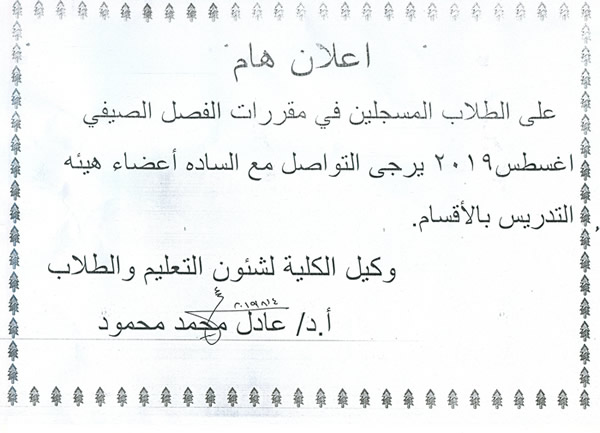 اعلان هام
على الطلاب المسجلين في مقررات الفصل الصيفي
اغسطس٢٠١٩ يرجى التواصل مع الساده أعضاء هيئه
التدريس بالأقسام.
وكيل الكلية لشئون التعليم والطلاب
أ.د/ عادل محمد محمود